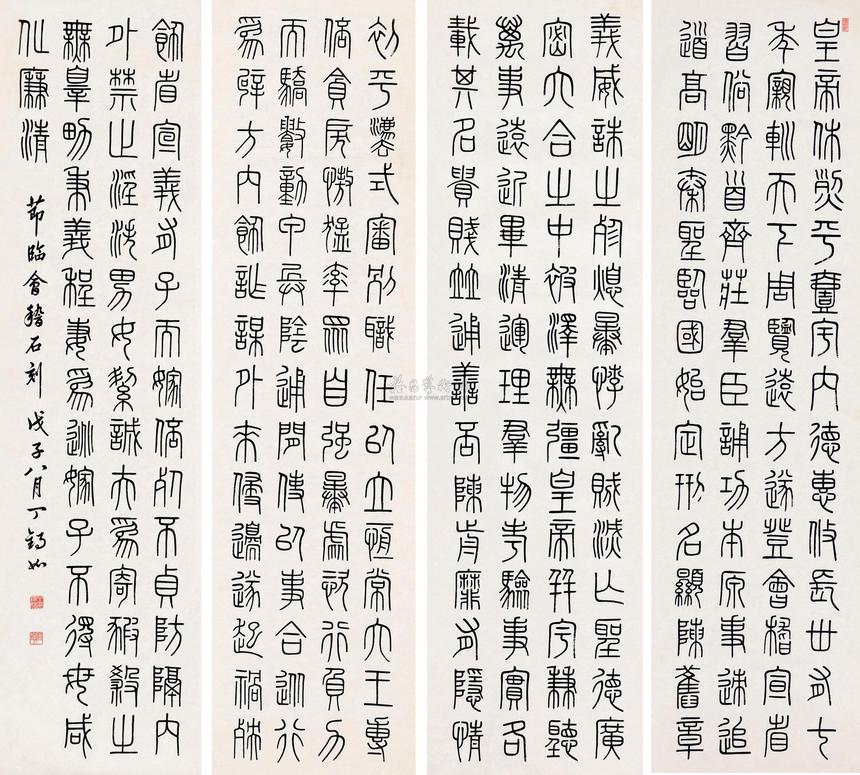 皇帝休烈平壹宇內德惠攸長丗有七
年親巡天下周覽遠方遂登會稽宣省
習俗黔首齊莊羣臣誦功本原事速追
道高明秦聖臨國始定刑名顯陳舊章
義威誅之殄熄暴悖亂賊滅亡聖德廣
密六合之中被澤無疆皇帝并宇兼聽
萬事遠近畢清運理羣物考驗事實各
載其名貴賤並通善否陳前靡有隱情
初平灋式審別職任以立恆常六王專
倍貪戾慠猛率眾自強暴虐恣行負力
而驕數動甲兵陰通閒使以事合從行
為辟方內飾詐謀外來侵邊遂起禍殃
飾省宣義有子而嫁倍死不貞防隔內
外禁止淫泆男女絜誠夫為寄豭殺之
無辠男秉義程妻為逃嫁子不得母咸
化廉清
節臨會稽石刻 戊子八月丁鑄如